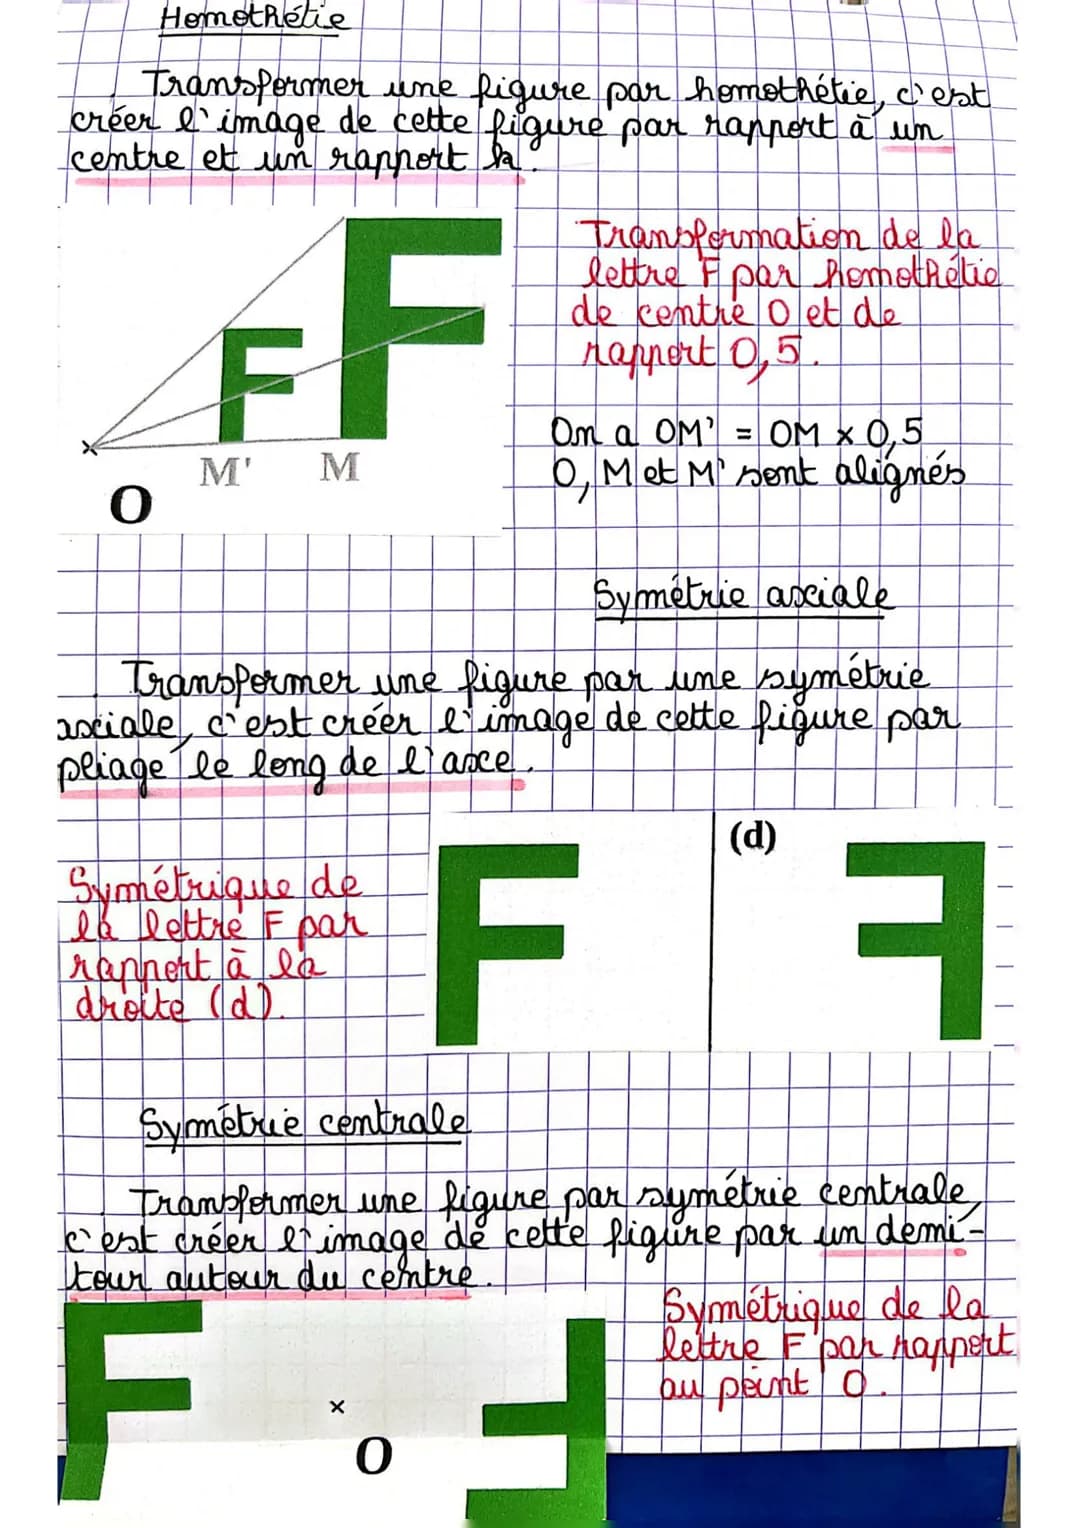 Homothétie
Transformer une figure par homothétie, c'est
créer l'image de cette figure par rapport à un
centre et un rapport k.
Transformation de la
lettre F par homothétie
de centre O et de
rapport 0,5.
On a OM' = OM x 0,5
O, M et M' sont alignés
M' M
O
Symétrie axciale
Transformer une figure par une symétrie
axciale, c'est créer l'image de cette figure par
pliage le long de l'axce.
(d)
Symétrique de
la lettre F par
rapport à la
droite (d).
Symétrie centrale
Transformer une figure par symétrie centrale,
c'est créer l'image de cette figure par un demi-
tour autour du centre.
Symétrique de la
lettre F par rapport
au point O.
O